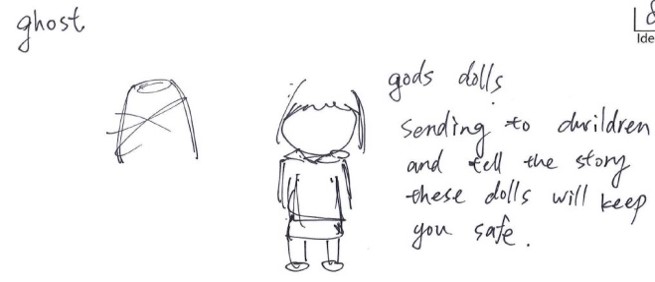 ghost
Ide
gods dolls
Sending to dwrildren
and tell the story
these dolls will keep
you safe.